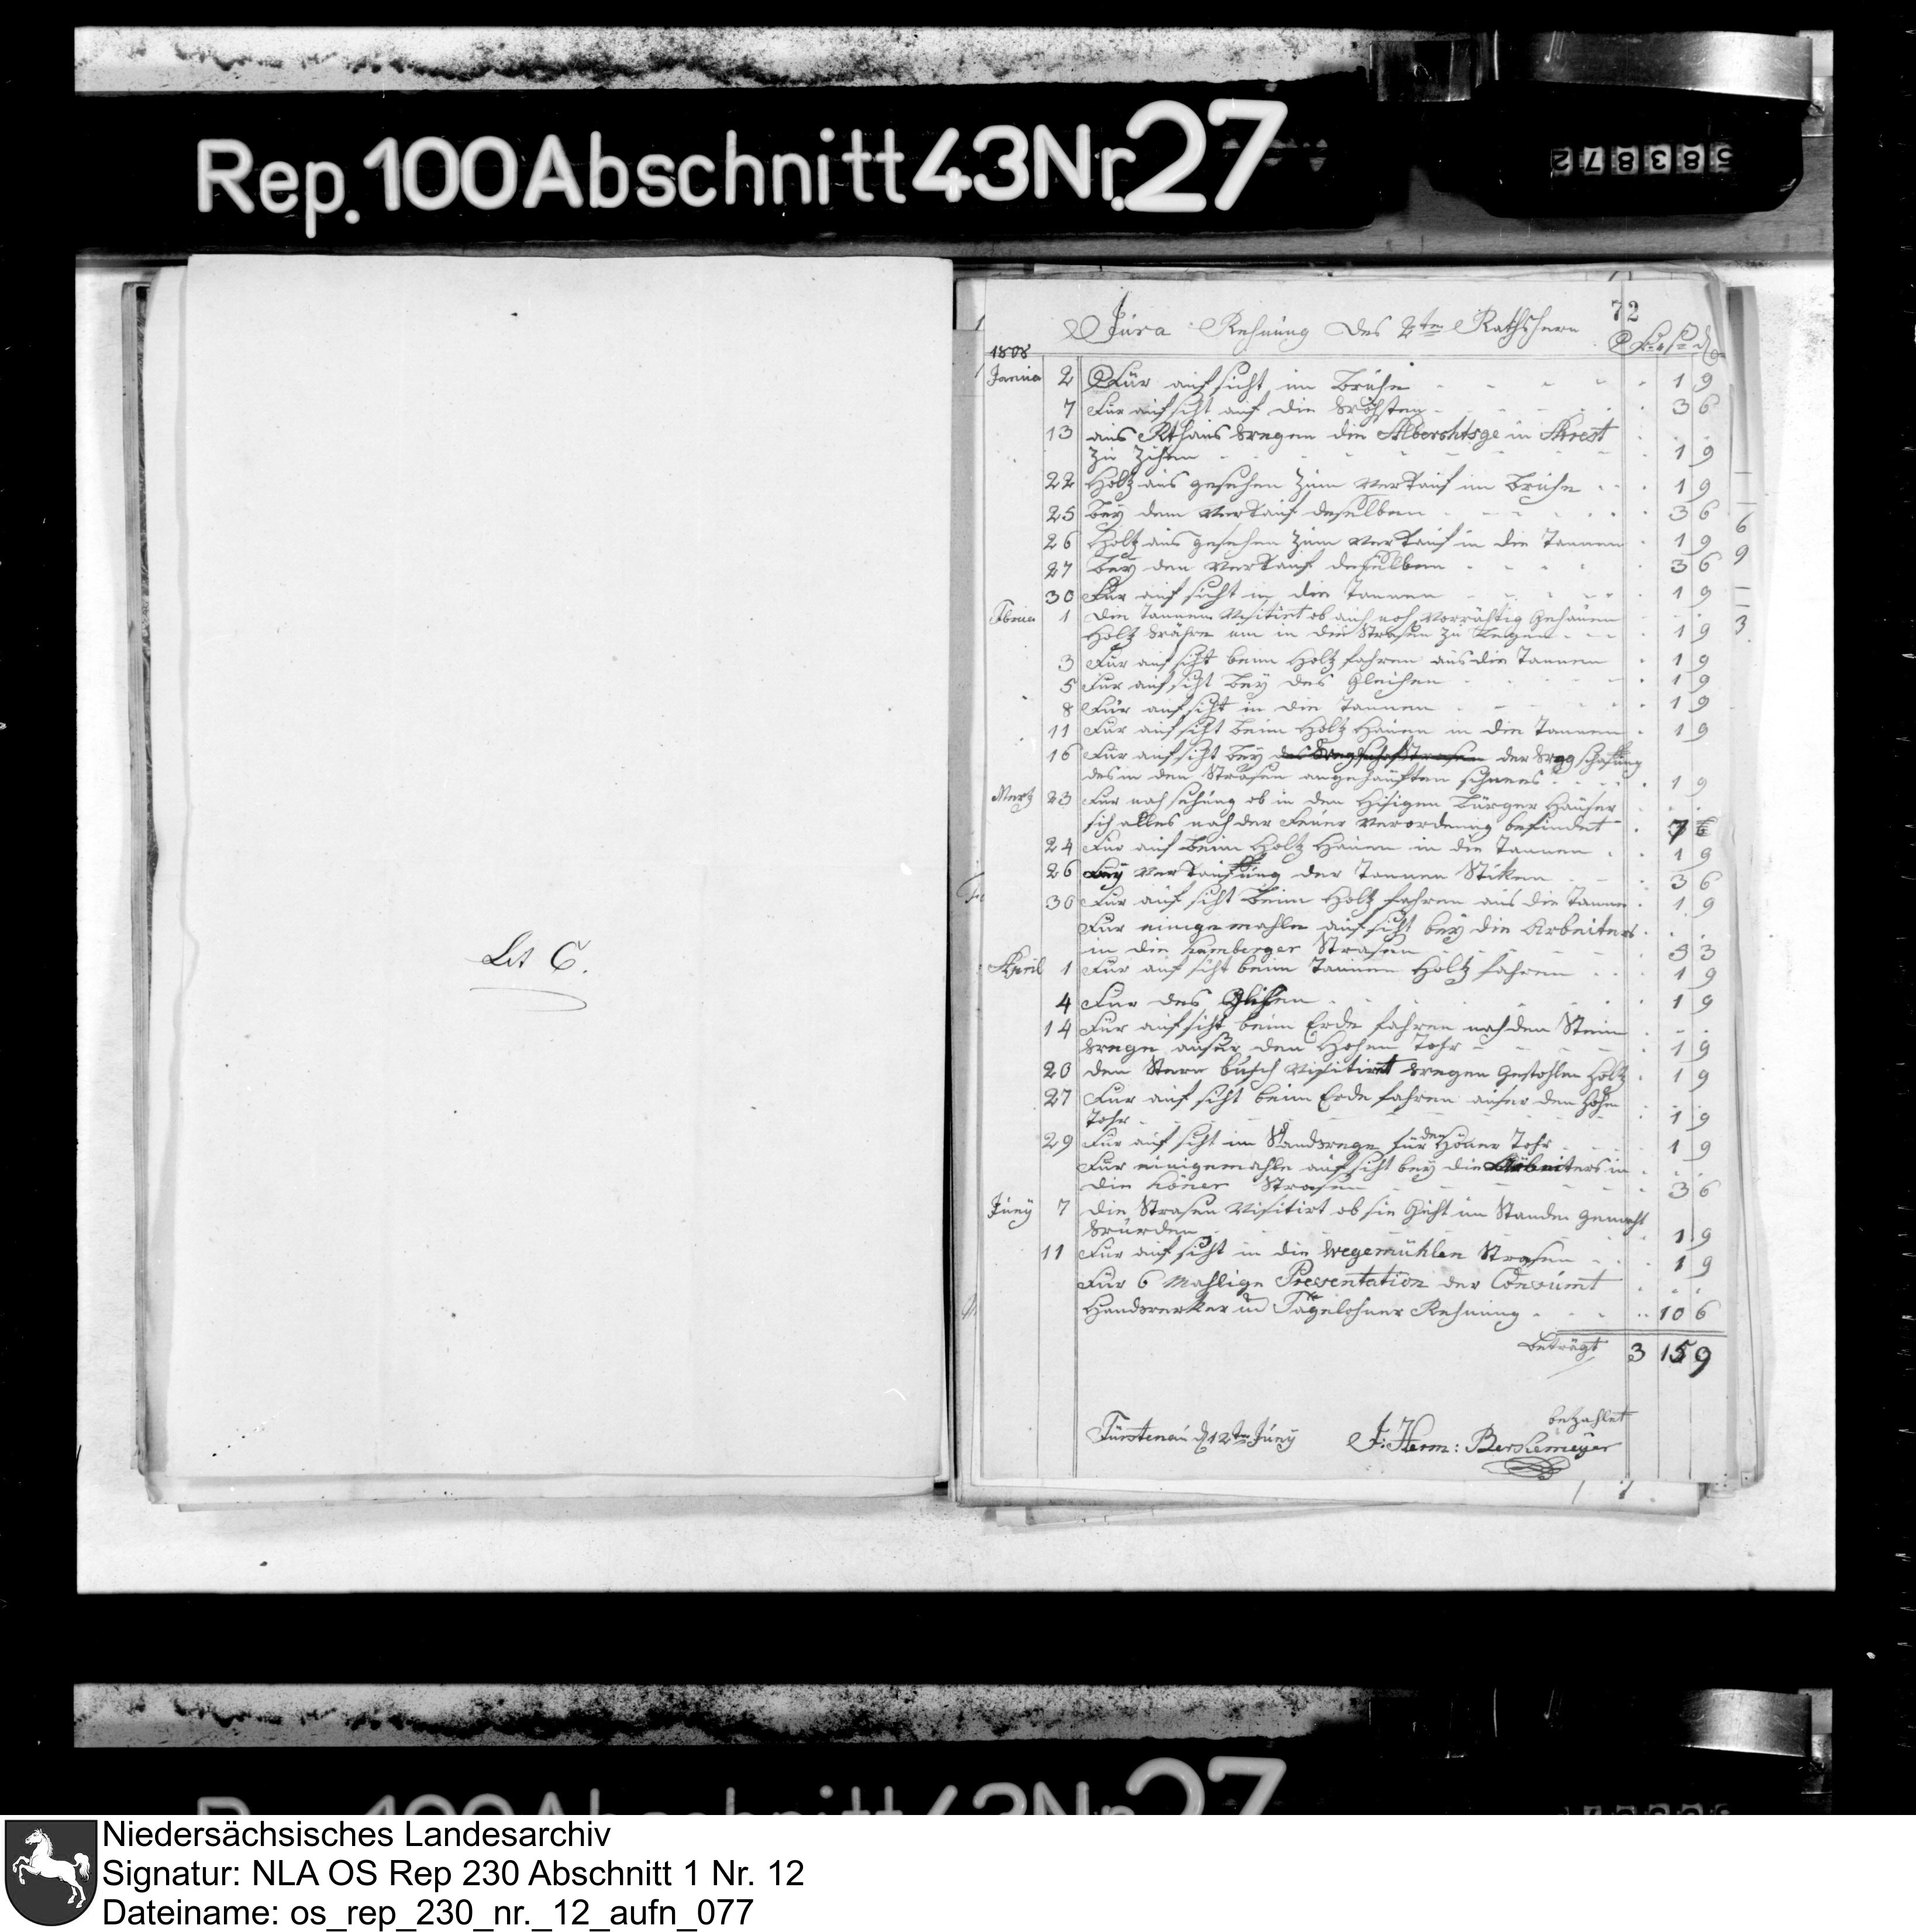 Rep. 100 Abschnitt 43 Nr. 27
583872
Lit C.
72
Jura Rehnung des 2ten Rathsherrn
1808
Janua 2 Für aufsicht im Brühe 1 9
7 Für aufsicht auf die 3 6
13 aus Rthaus wegen die in Arest
zu 1 9
22 Holtz aus gesehen zum Verkauf im Brühe 1 9
25 bey dem Verkauf deselben 3 6
26 Holtz aus gesehen zum Verkauf in die Tannen 1 9
27 bey den Verkauf deselben 3 6
30 Für aufsicht in die Tannen 1 9
Fbrua 1 die Tannen Visitirt ob auch noch Vorrähtig Gehauen
Holtz währe um in die Strasen zu legen 1 9
3 Für aufsiht beim Holtz fahren aus die Tannen 1 9
5 Für aufsiht bey des Gleichen 1 9
8 Für aufsiht in die Tannen 1 9
11 Für aufsiht beim Holtz Hauen in die Tannen 1 9
16 Für aufsiht bey der Wegschafung
des in den Strasen angehäuften schnees 1 9
Mertz 23 Für nachsehung ob in den Hisigen Bürger Häuser
sich alles nach der Feuer Verordnung befindet 7
24 Für auf beim Holtz Hauen in die Tannen 1 9
26 bey Verkaufung der Tannen Stüken 3 6
30 Für aufsiht beim Holtz fahren aus die Tannen 1 9
Für einigemahle aufsicht bey die Arbeiters
in die Strasen 3 3
April 1 Für aufsiht beim Tannen Holtz fahren 1 9
4 Für des Glihen 1 9
14 Für aufsiht beim Erde fahren nach den Stein
wege auser den Hohen Tohr 1 9
20 den Stern busch Visitirt wegen Gestohlen Holtz 1 9
27 Für aufsiht beim Erde fahren auser den Hohen
Tohr 1 9
29 Für aufsiht im für den Höner Tohr 1 9
Für einigemahle aufsicht bey die Arbeiters in
die höner Strasen 3 6
Juny 7 die Strasen Visitirt ob sie im Stande gemacht
würden 1 9
11 Für aufsicht in die Wegemühlen Strasen 1 9
Für 6 Mahlige Presentation der
Handwerker und Tagelohner Rehnung 10 6
beträgt 3 15 9
Fürstenau d 12ten Juny
betzahlet
F: Herm: Berkemeyer
6
9
3
Niedersächsisches Landesarchiv
Signatur: NLA OS Rep 230 Abschnitt 1 Nr. 12
Dateiname: os_rep_230_nr._12_aufn_077